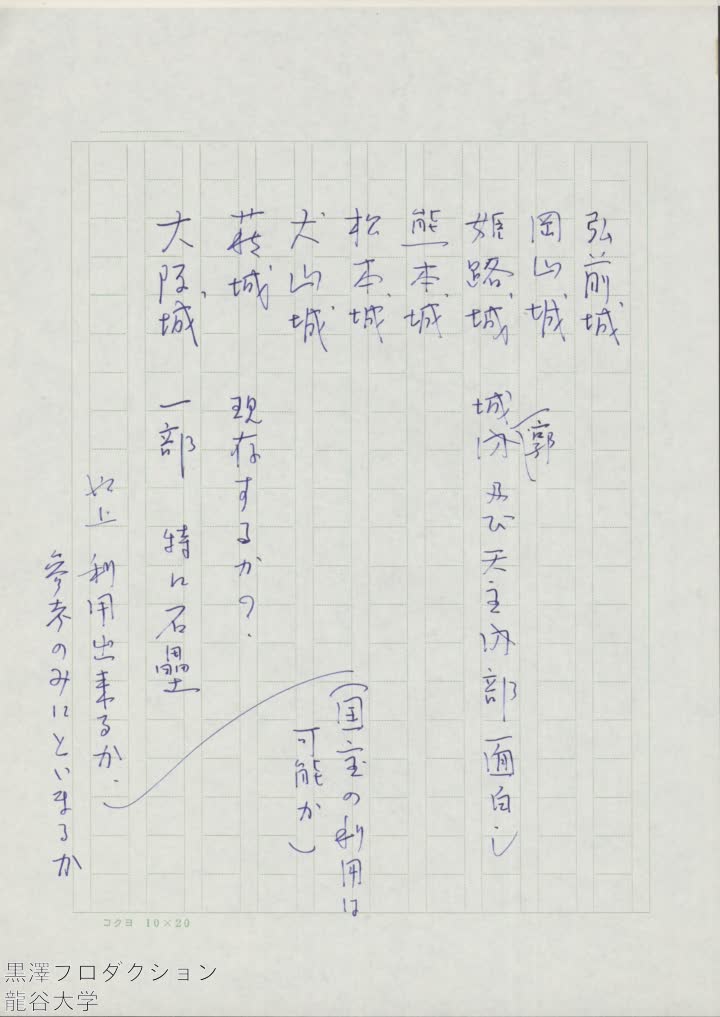 弘前城
岡山城
姫路城 城内(郭)及び天主内部面白し
熊本城
松本城
犬山城
萩城 現存するか?
大阪城 一部 特に石塁
以上 利用出来るか、
参考のみにといまるか
(国宝の利用は
可能か)
コクヨ 10×20
黒澤フロダクション
龍谷大学